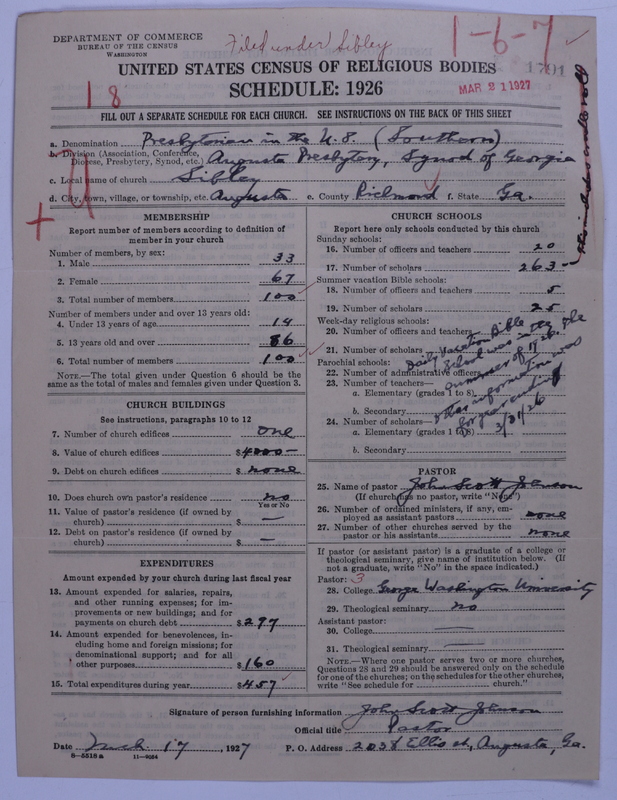 DEPARTMENT OF COMMERCE
BUREAU OF THE CENSUS
WASHINGTON
Filed under Sibley
1-6-7
1701
UNITED STATES CENSUS OF RELIGIOUS BODIES
SCHEDULE: 1926
MAR 21 1927
18
FILL OUT A SEPARATE SCHEDULE FOR EACH CHURCH. SEE INSTRUCTIONS ON THE BACK OF THIS SHEET
a. Denomination Presbyterian in the U.S. (Southern)
b. Division (Association, Conference, Diocese, Presbytery, Synod, etc.) Augusta Presbytery, Synod of Georgia
c. Local name of church Sibley
d. City, town, village, or township, etc. Augusta e. County Richmond f. State Ga.
MEMBERSHIP
Report number of members according to definition of
member in your church
Number of members, by sex:
1. Male 33
2. Female 67
3. Total number of members 100
Number of members under and over 13 years old:
4. Under 13 years of age 14
5. 13 years old and over 86
6. Total number of members 100
NOTE.—The total given under Question 6 should be the
same as the total of males and females given under Question 3.
CHURCH BUILDINGS
See instructions, paragraphs 10 to 12
7. Number of church edifices one
8. Value of church edifices $4000—
9. Debt on church edifices $ none
10. Does church own pastor's residence no
Yes or No
11. Value of pastor's residence (if owned by
church) $ —
12. Debt on pastor's residence (if owned by
church) $ —
EXPENDITURES
Amount expended by your church during last fiscal year
13. Amount expended for salaries, repairs,
and other running expenses; for im-
provements or new buildings; and for
payments on church debt $297
14. Amount expended for benevolences, in-
cluding home and foreign missions; for
denominational support; and for all
other purposes $160
15. Total expenditures during year $457
CHURCH SCHOOLS
Report here only schools conducted by this church
Sunday schools:
16. Number of officers and teachers 20
17. Number of scholars 263
Summer vacation Bible schools:
18. Number of officers and teachers 5
19. Number of scholars 25
Week-day religious schools:
20. Number of officers and teachers
21. Number of scholars
Parochial schools:
22. Number of administrative officers
23. Number of teachers—
a. Elementary (grades 1 to 8)
b. Secondary
24. Number of scholars—
a. Elementary (grades 1 to 8)
b. Secondary
Daily Vacation Bible
School was in the
summer of 1926.
other information was
for year ending
3/31/26
PASTOR
25. Name of pastor John Scott Johnson
(If church has no pastor, write "None")
26. Number of ordained ministers, if any, em-
ployed as assistant pastors none
27. Number of other churches served by the
pastor or his assistants none
If pastor (or assistant pastor) is a graduate of a college or
theological seminary, give name of institution below. (If
not a graduate, write "No" in the space indicated.)
Pastor: 3
28. College George Washington University
29. Theological seminary no
Assistant pastor:
30. College —
31. Theological seminary —
NOTE.—Where one pastor serves two or more churches,
Questions 28 and 29 should be answered only on the schedule
for one of the churches; on the schedules for the other churches,
write "See schedule for church."
Signature of person furnishing information John Scott Johnson
Official title Pastor
Date Mch. 17, 1927 P. O. Address Ellis st, Augusta, Ga.
8-5518a 11-9064